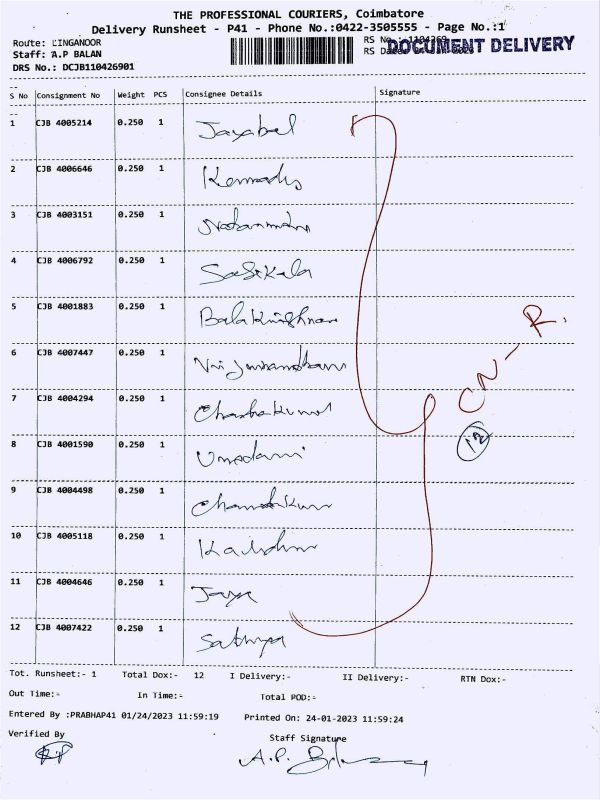 THE PROFESSIONAL COURIERS, Coimbatore
Delivery Runsheet - P41 - Phone No.:0422-3505555 - Page No.:1
Route: LINGANOOR
RS No.: 1104269
DOCUMENT DELIVERY
Staff: A.P BALAN
RS Dated 24-Jan-2023
DRS No.: DCJB110426901
S No Consignment No Weight PCS Consignee Details Signature
1 CJB 4005214 0.250 1 Jayabal
2 CJB 4006646 0.250 1
3 CJB 4003151 0.250 1
4 CJB 4006792 0.250 1 Sasikala
5 CJB 4001883 0.250 1 Balakrishnan
6 CJB 4007447 0.250 1
7 CJB 4004294 0.250 1
8 CJB 4001590 0.250 1
9 CJB 4004498 0.250 1
10 CJB 4005118 0.250 1
11 CJB 4004646 0.250 1 Jaya
12 CJB 4007422 0.250 1 Sathya
CN - R.
12
Tot. Runsheet:- 1 Total Dox:- 12 I Delivery:- II Delivery:- RTN Dox:-
Out Time:- In Time:- Total POD:-
Entered By :PRABHAP41 01/24/2023 11:59:19 Printed On: 24-01-2023 11:59:24
Verified By Staff Signature
A.P.